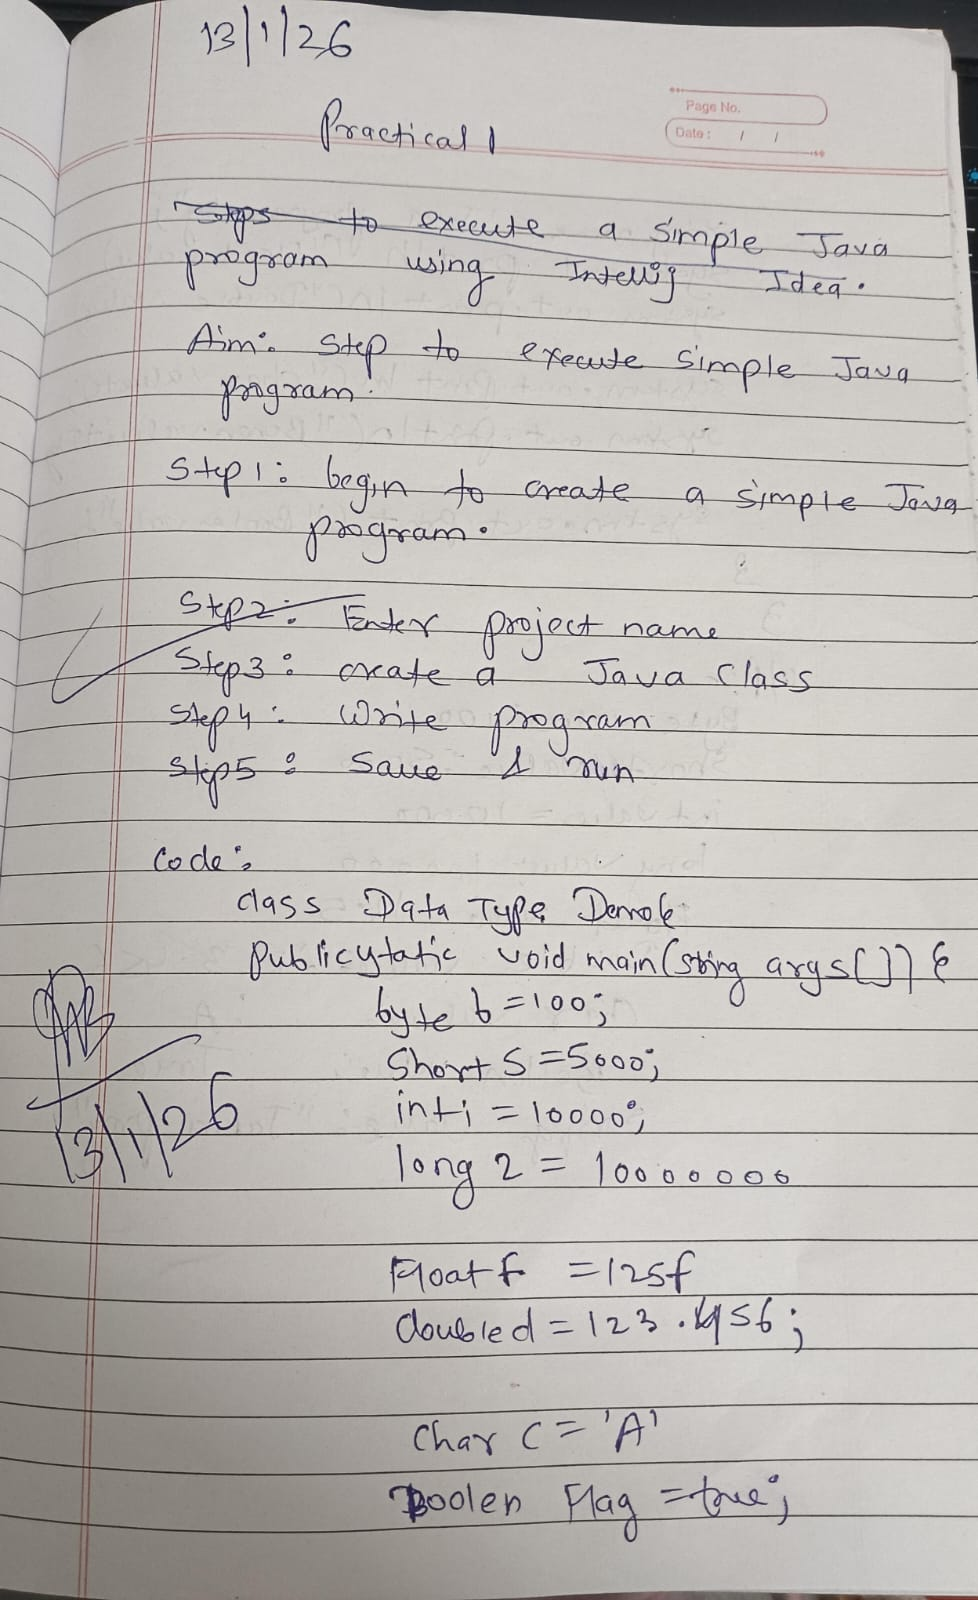 13/1/26
Page No.
Date: / /
Practical 1
Steps to execute a simple Java
program using Intellij Idea.
Aim: Step to execute simple Java
program.
Step 1: begin to create a simple Java
program.
Step2: Enter project name
Step3: create a Java Class
Step4: Write program
Step5: Save & run
Code:
class Data Type Demo {
Publicstatic void main(string args[]) {
byte b=100;
Short S=5000;
int i = 10000;
long 2 = 10000000
Float f =125f
double d = 123.456;
13/1/26
Char C = 'A'
Boolen Flag =true;